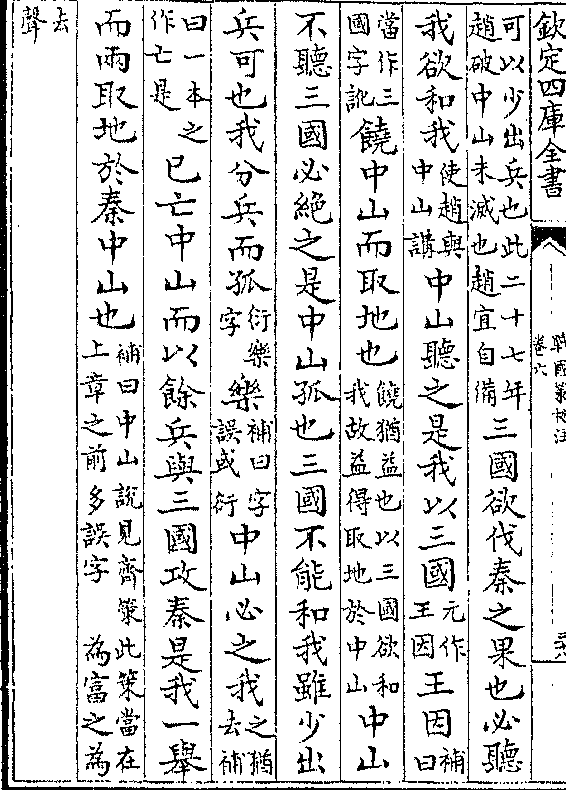 欽定四庫全書
戰國策校注
卷六
可以少出兵也此二十七年趙破中山未滅也趙宜自備三國欲伐秦之果也必聽
我欲和我使趙與中山講中山聽之是我以三國元作王因王因補曰
當作三國字訛饒中山而取地也饒猶益也以三國欲和我故益得取地於中山中山
不聽三國必絶之是中山孤也三國不能和我雖少出
兵可也我分兵而孤衍樂字樂補曰字誤或衍中山必之我之猶去補
曰一本之作亡是已亡中山而以餘兵與三國攻秦是我一舉
而兩取地於秦中山也補曰中山說見齊策此策當在上章之前多誤字 為富之為
去聲